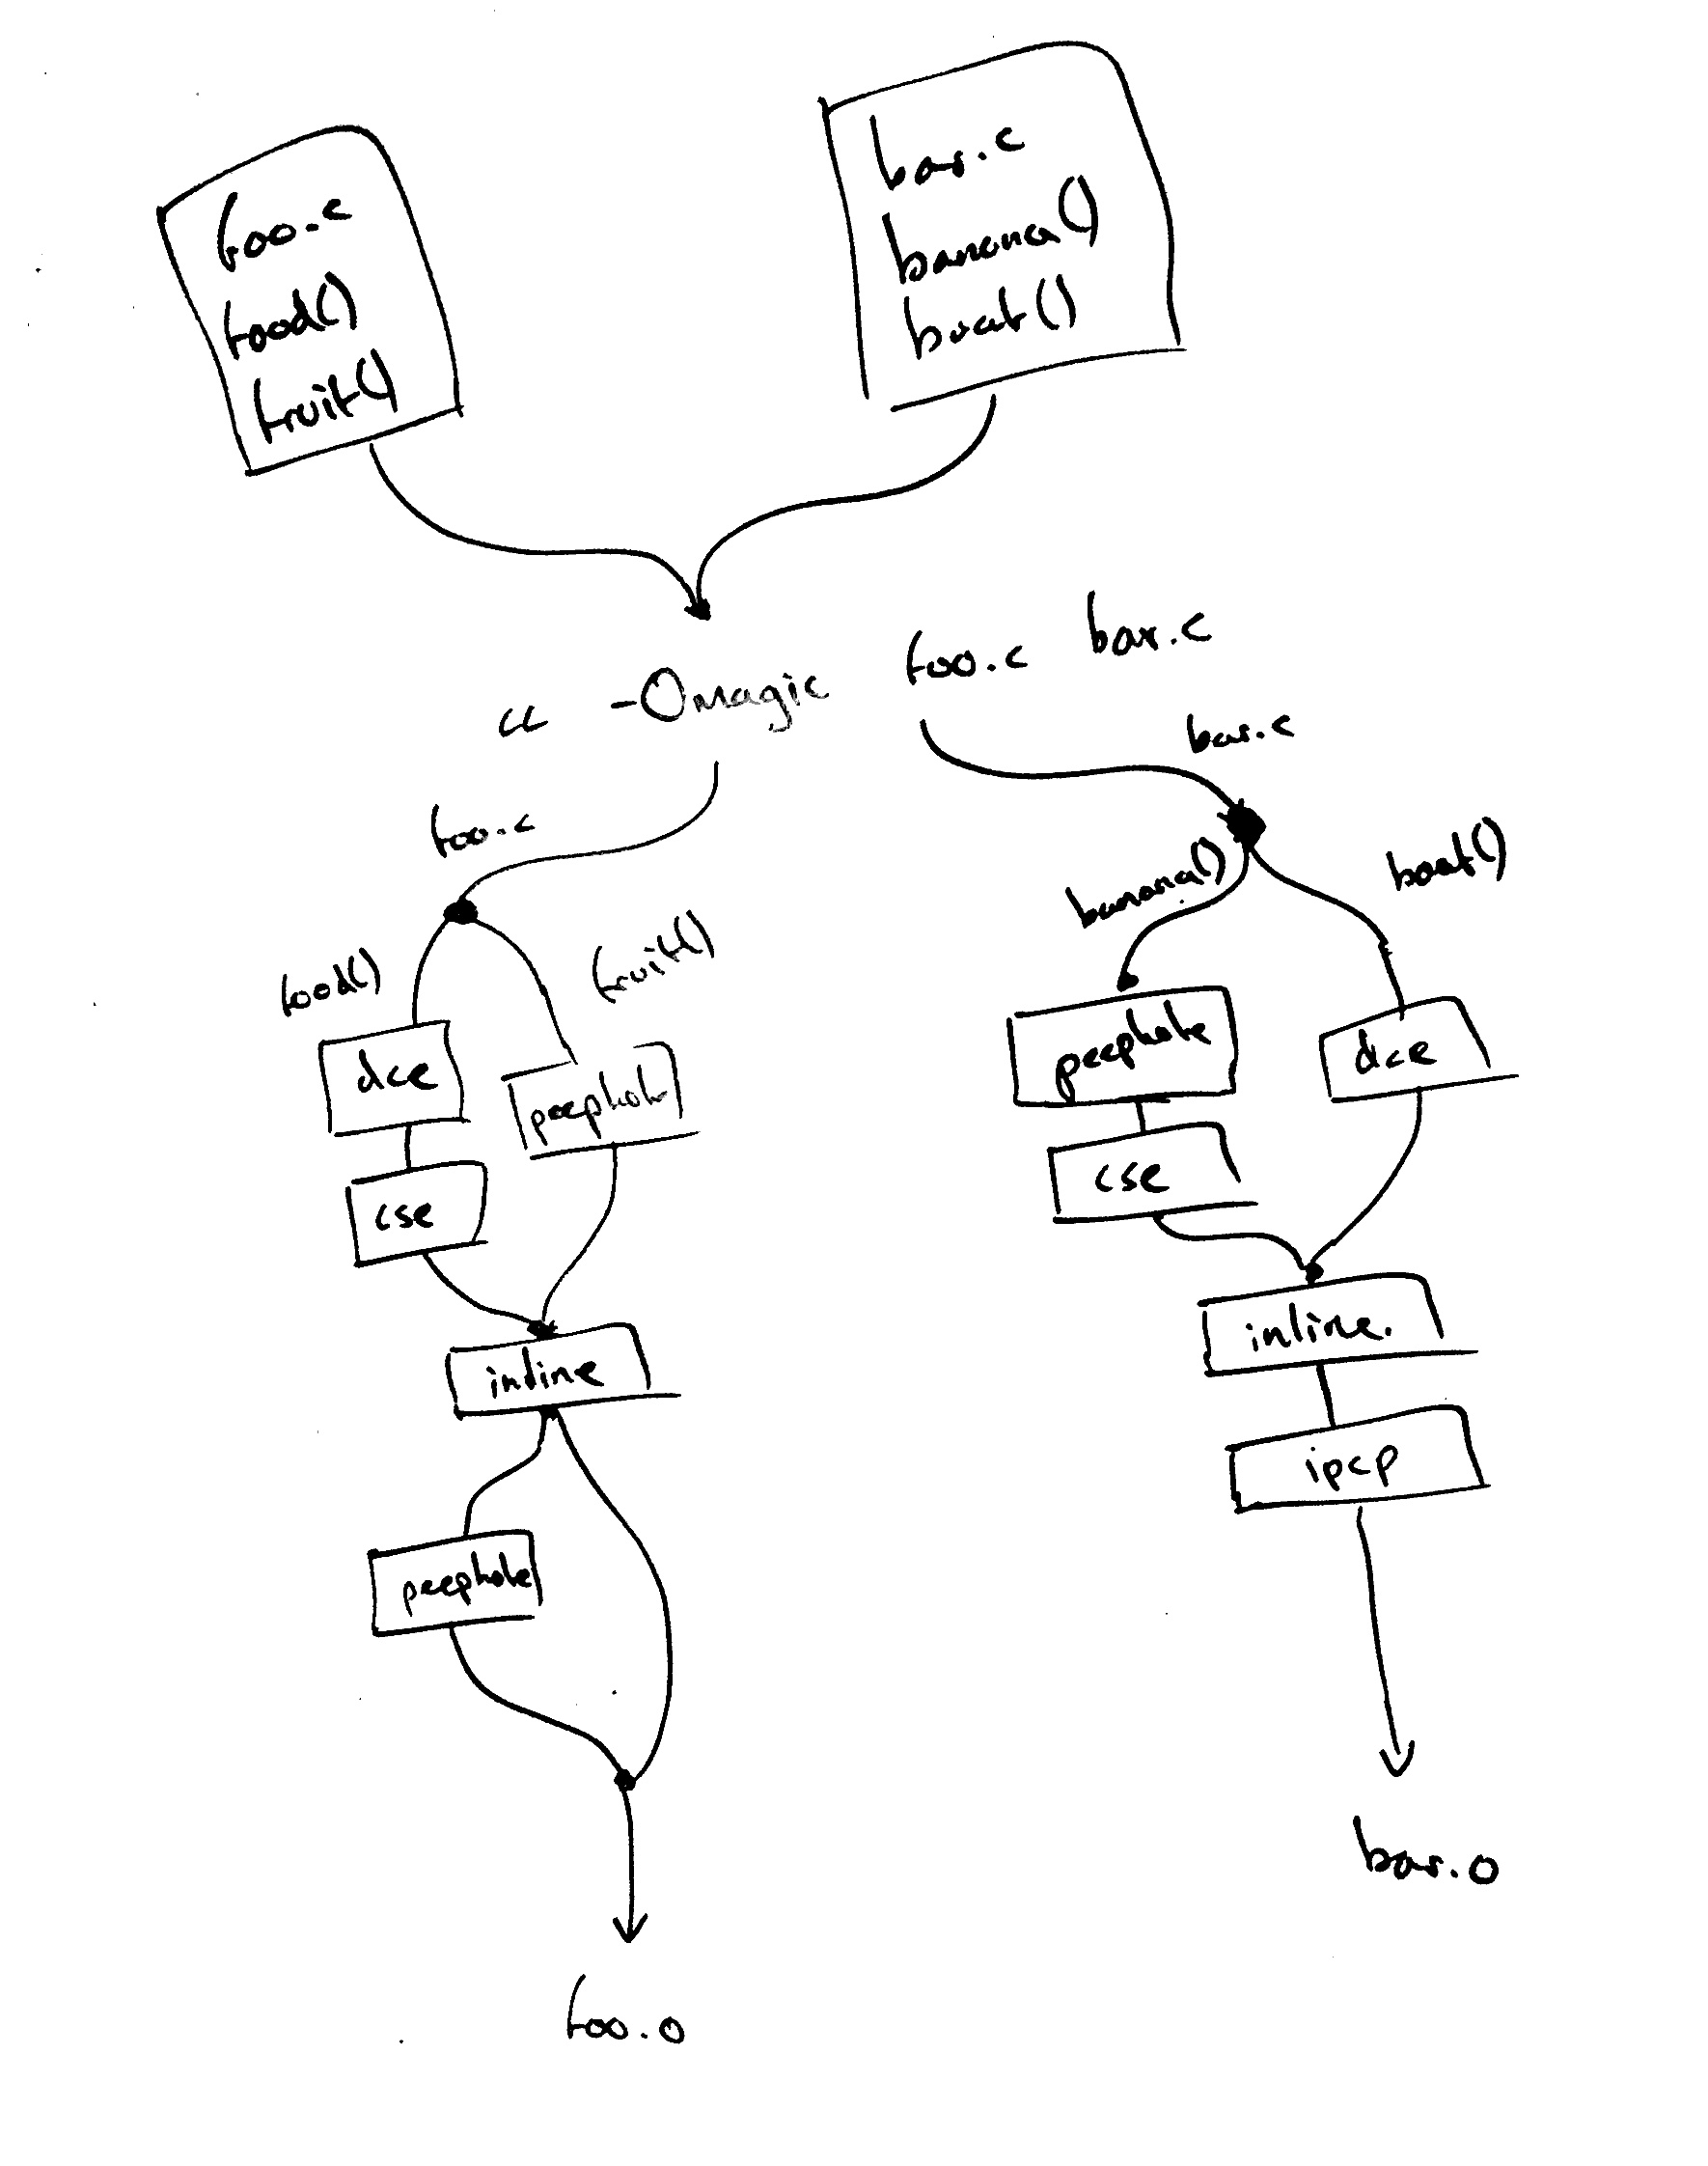 foo.c
food()
fruit()
bar.c
banana()
boat()
cc -Omagic foo.c bar.c
foo.c
food()
fruit()
dce
peephole
cse
inline
peephole
foo.o
bar.c
banana()
boat()
peephole
dce
cse
inline.
ipcp
bar.o